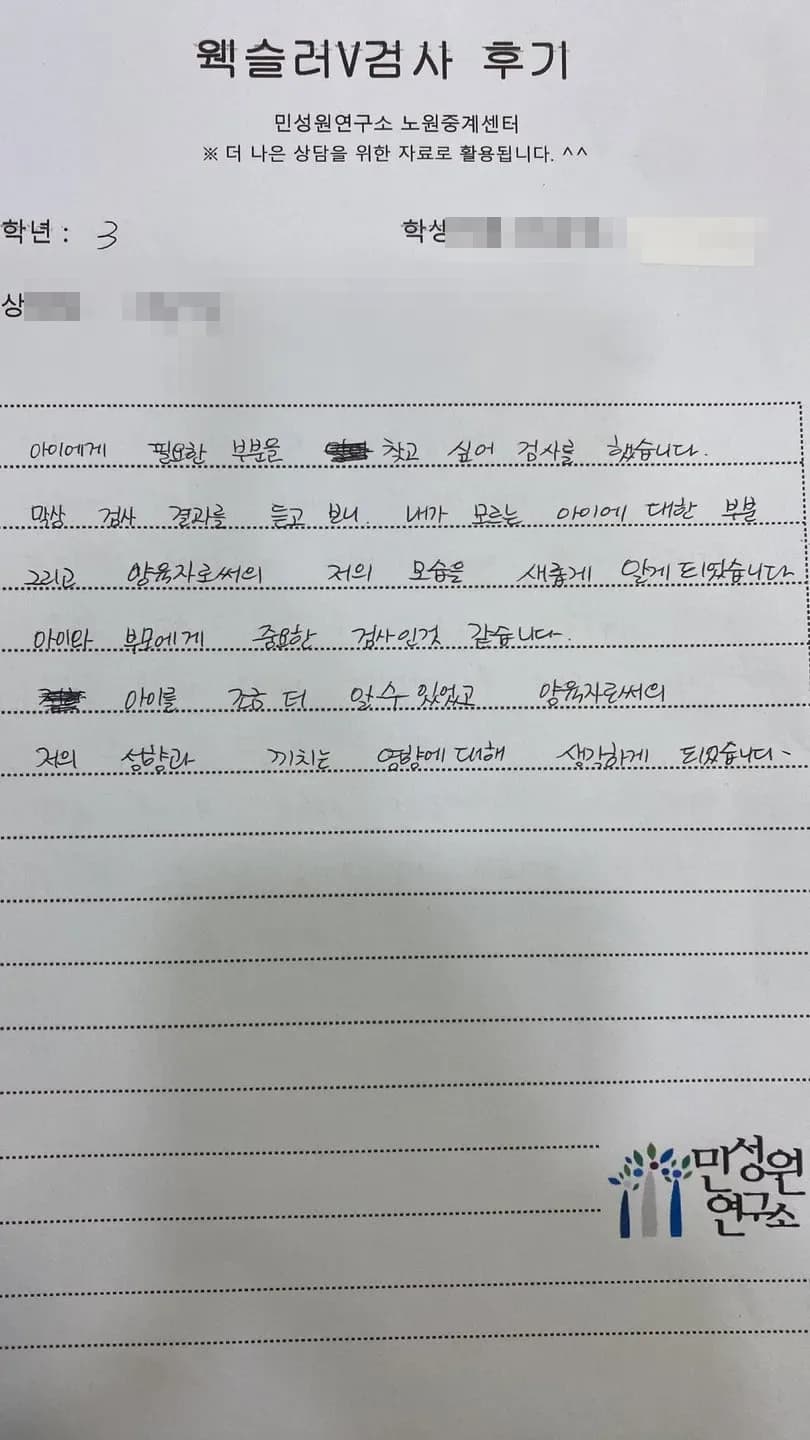 웩슬러V검사 후기
민성원연구소 노원중계센터
※ 더 나은 상담을 위한 자료로 활용됩니다. ^^
학년 : 3 학생
상
아이에게 필요한 부분을 찾고 싶어 검사를 했습니다.
막상 검사 결과를 듣고 보니. 내가 모르는 아이에 대한 부분
그리고 양육자로써의 저의 모습을 새롭게 알게 되었습니다
아이와 부모에게 중요한 검사인것 같습니다.
아이를 조금 더 알 수 있었고 양육자로써의
저의 성향과 끼치는 영향에 대해 생각하게 되었습니다~
민성원
연구소